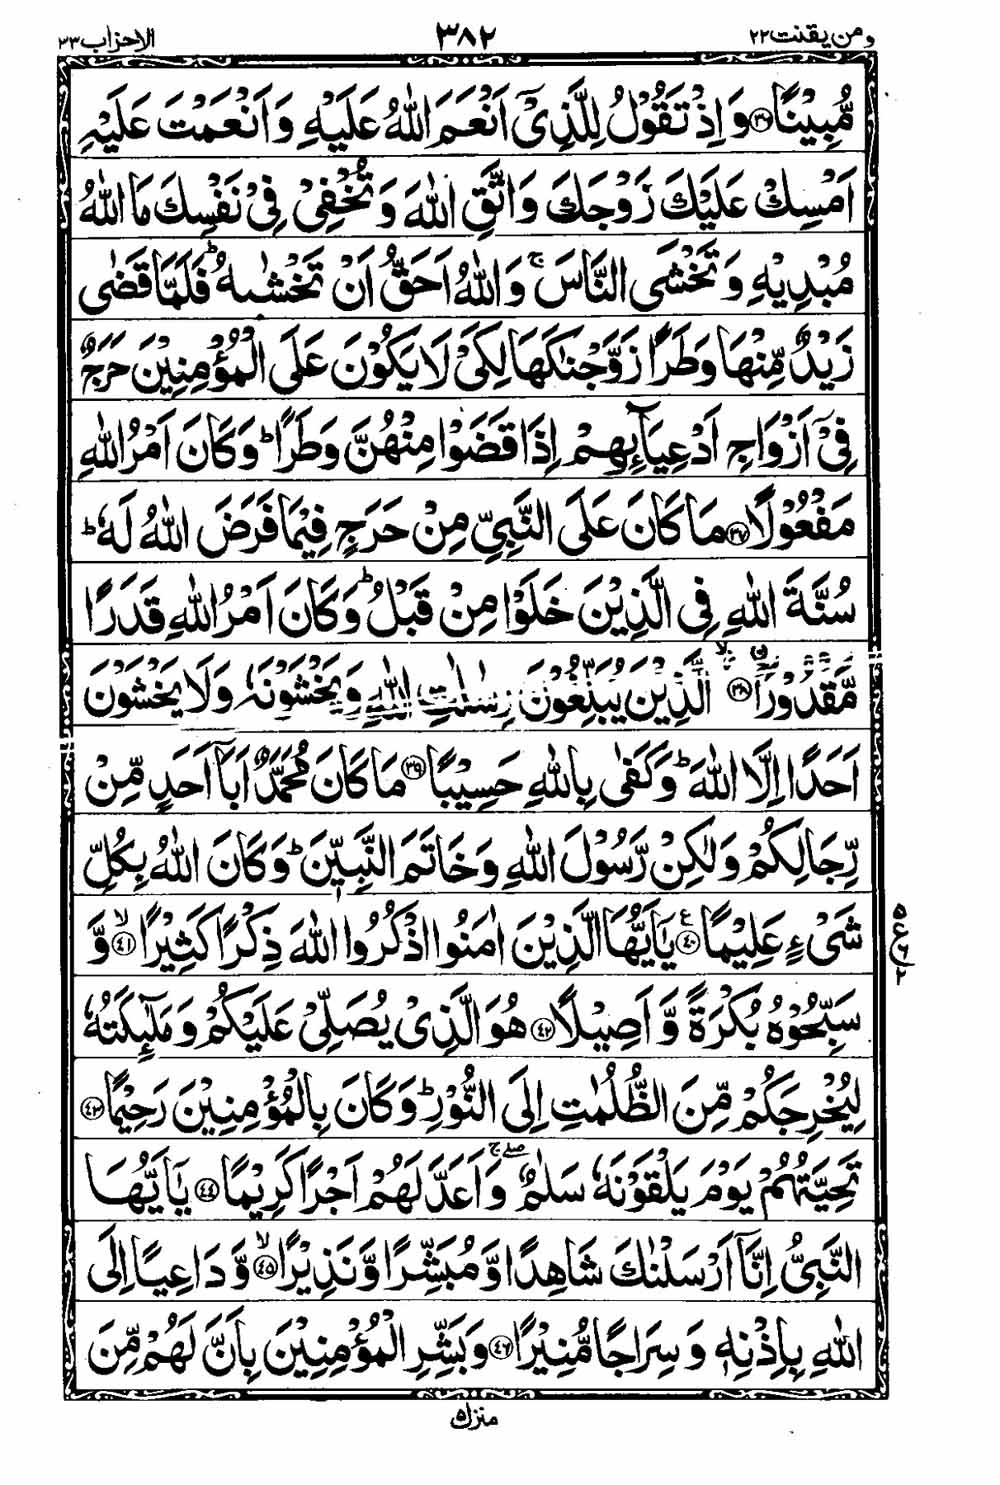 ومن یقنت ۲۲ ۳۸۲ الاحزاب ۳۳
مُّبِيْنًا ﴿۳۶﴾ وَ اِذْ تَقُوْلُ لِلَّذِيْۤ اَنْعَمَ اللّٰهُ عَلَيْهِ وَ اَنْعَمْتَ عَلَيْهِ
اَمْسِكْ عَلَيْكَ زَوْجَكَ وَ اتَّقِ اللّٰهَ وَ تُخْفِيْ فِيْ نَفْسِكَ مَا اللّٰهُ
مُبْدِيْهِ وَ تَخْشَى النَّاسَ ۚ وَ اللّٰهُ اَحَقُّ اَنْ تَخْشٰىهُ ؕ فَلَمَّا قَضٰى
زَيْدٌ مِّنْهَا وَطَرًا زَوَّجْنٰكَهَا لِكَيْ لَا يَكُوْنَ عَلَى الْمُؤْمِنِيْنَ حَرَجٌ
فِيْۤ اَزْوَاجِ اَدْعِيَآىِٕهِمْ اِذَا قَضَوْا مِنْهُنَّ وَطَرًا ؕ وَ كَانَ اَمْرُ اللّٰهِ
مَفْعُوْلًا ﴿۳۷﴾ مَا كَانَ عَلَى النَّبِيِّ مِنْ حَرَجٍ فِيْمَا فَرَضَ اللّٰهُ لَهٗ ؕ
سُنَّةَ اللّٰهِ فِي الَّذِيْنَ خَلَوْا مِنْ قَبْلُ ؕ وَ كَانَ اَمْرُ اللّٰهِ قَدَرًا
مَّقْدُوْرًا ﴿۳۸﴾ ۙ الَّذِيْنَ يُبَلِّغُوْنَ رِسٰلٰتِ اللّٰهِ وَ يَخْشَوْنَهٗ وَ لَا يَخْشَوْنَ
اَحَدًا اِلَّا اللّٰهَ ؕ وَ كَفٰى بِاللّٰهِ حَسِيْبًا ﴿۳۹﴾ مَا كَانَ مُحَمَّدٌ اَبَاۤ اَحَدٍ مِّنْ
رِّجَالِكُمْ وَ لٰكِنْ رَّسُوْلَ اللّٰهِ وَ خَاتَمَ النَّبِيّٖنَ ؕ وَ كَانَ اللّٰهُ بِكُلِّ
شَيْءٍ عَلِيْمًا ﴿۴۰﴾ ع يٰۤاَيُّهَا الَّذِيْنَ اٰمَنُوا اذْكُرُوا اللّٰهَ ذِكْرًا كَثِيْرًا ﴿۴۱﴾ ۙ وَّ
۵ ع ۶ ۲
سَبِّحُوْهُ بُكْرَةً وَّ اَصِيْلًا ﴿۴۲﴾ هُوَ الَّذِيْ يُصَلِّيْ عَلَيْكُمْ وَ مَلٰٓىِٕكَتُهٗ
لِيُخْرِجَكُمْ مِّنَ الظُّلُمٰتِ اِلَى النُّوْرِ ؕ وَ كَانَ بِالْمُؤْمِنِيْنَ رَحِيْمًا ﴿۴۳﴾
تَحِيَّتُهُمْ يَوْمَ يَلْقَوْنَهٗ سَلٰمٌ ۖۚ وَ اَعَدَّ لَهُمْ اَجْرًا كَرِيْمًا ﴿۴۴﴾ يٰۤاَيُّهَا
النَّبِيُّ اِنَّاۤ اَرْسَلْنٰكَ شَاهِدًا وَّ مُبَشِّرًا وَّ نَذِيْرًا ﴿۴۵﴾ ۙ وَّ دَاعِيًا اِلَى
اللّٰهِ بِاِذْنِهٖ وَ سِرَاجًا مُّنِيْرًا ﴿۴۶﴾ وَ بَشِّرِ الْمُؤْمِنِيْنَ بِاَنَّ لَهُمْ مِّنَ
منزل ۵